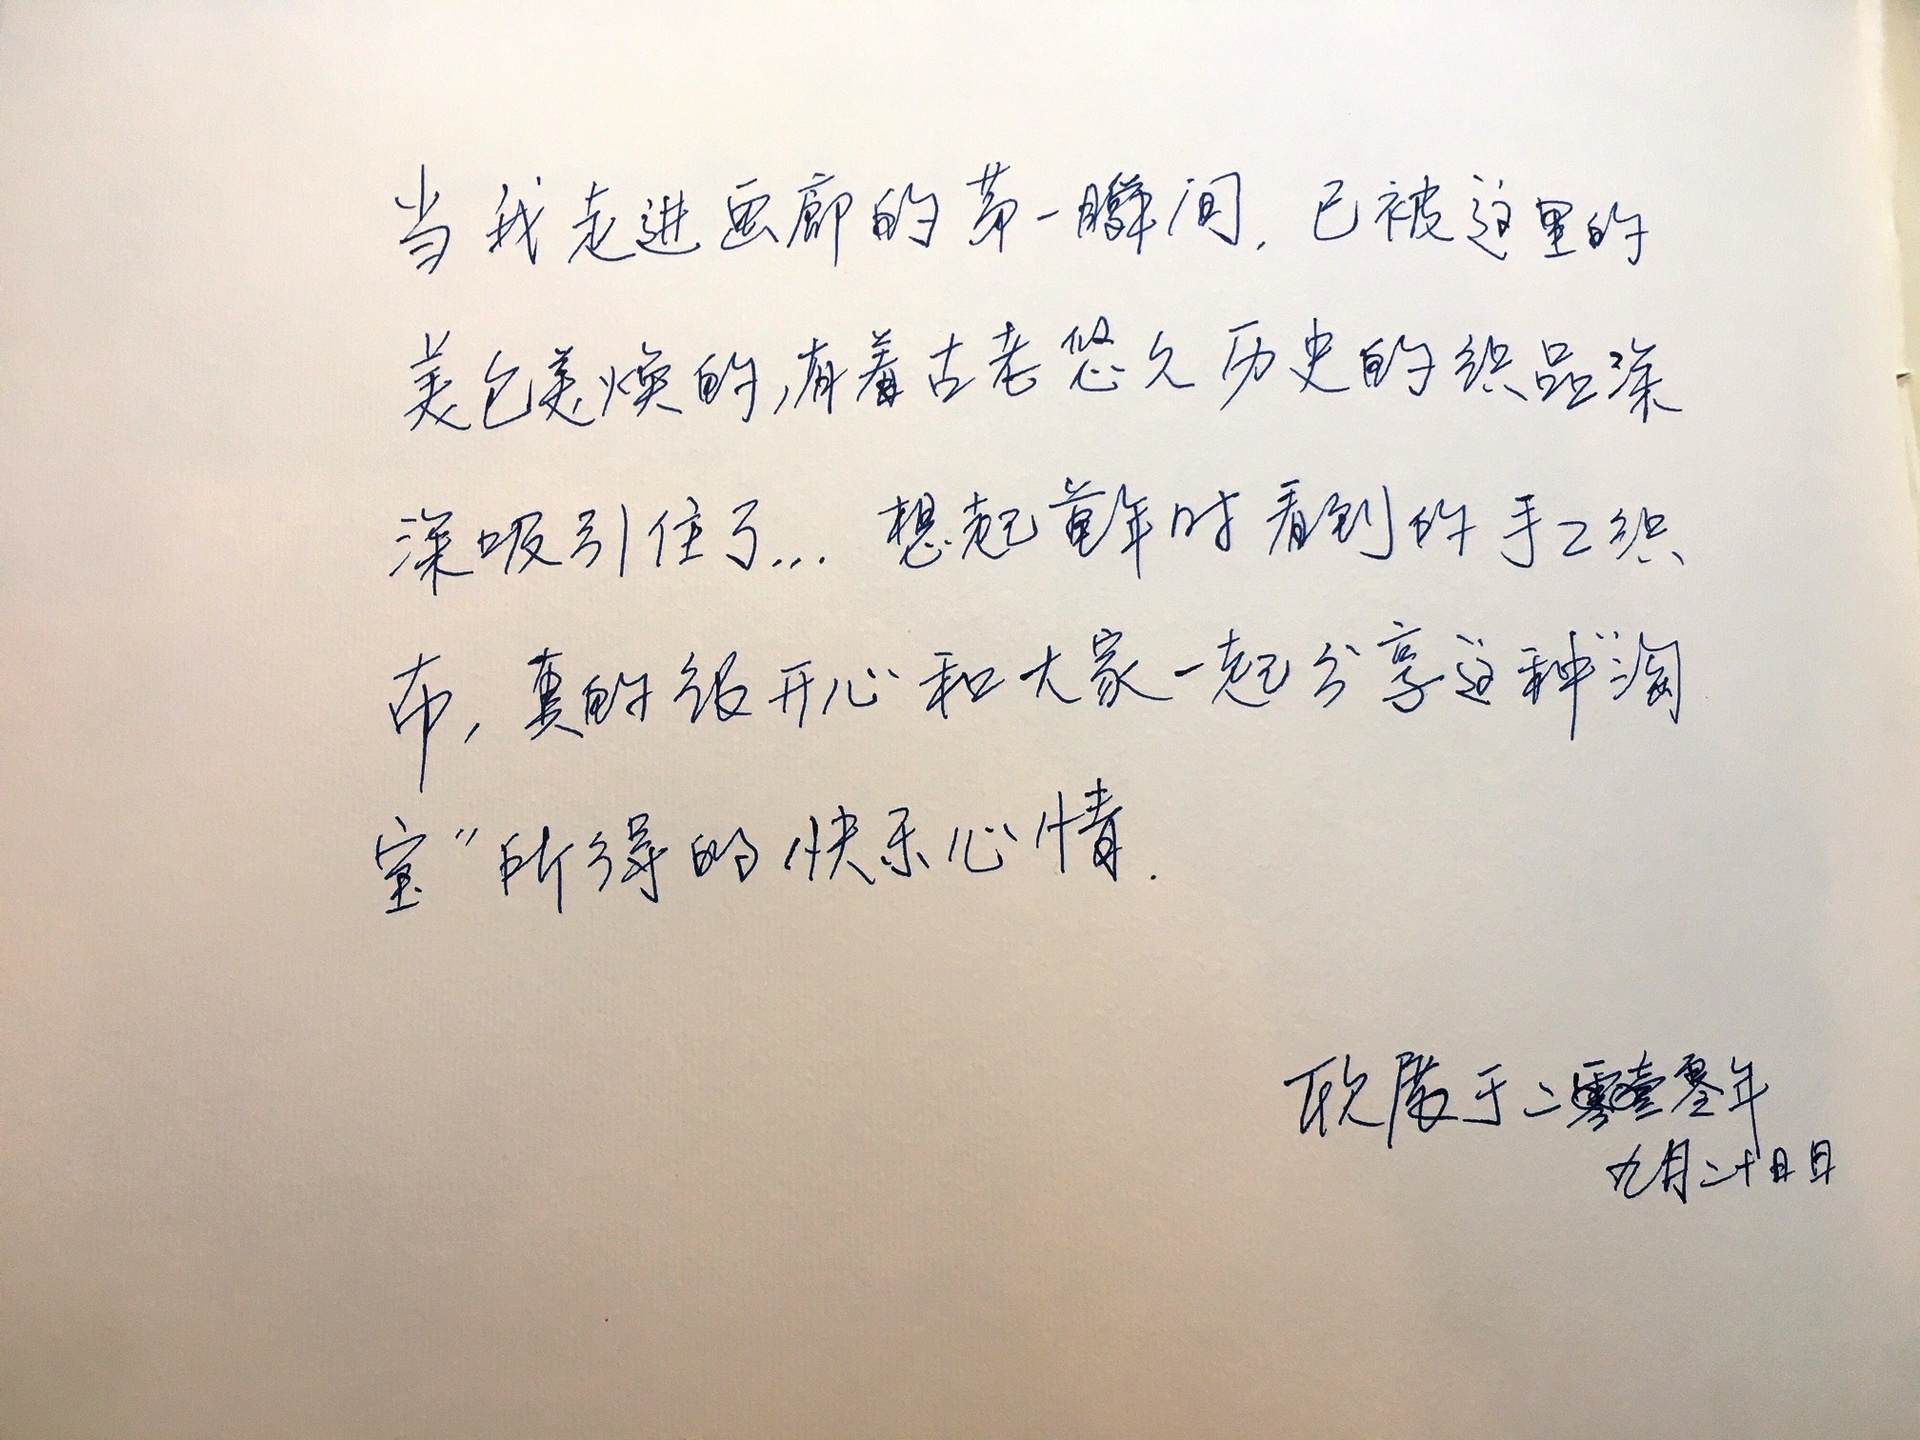 当我走进画廊的第一瞬间，已被这里的
美仑美焕的，有着古老悠久历史的织品深
深吸引住了... 想起童年时看到的手工织
布，真的很开心和大家一起分享这种“淘
宝”所得的快乐心情.
于二零壹零年
九月二十日